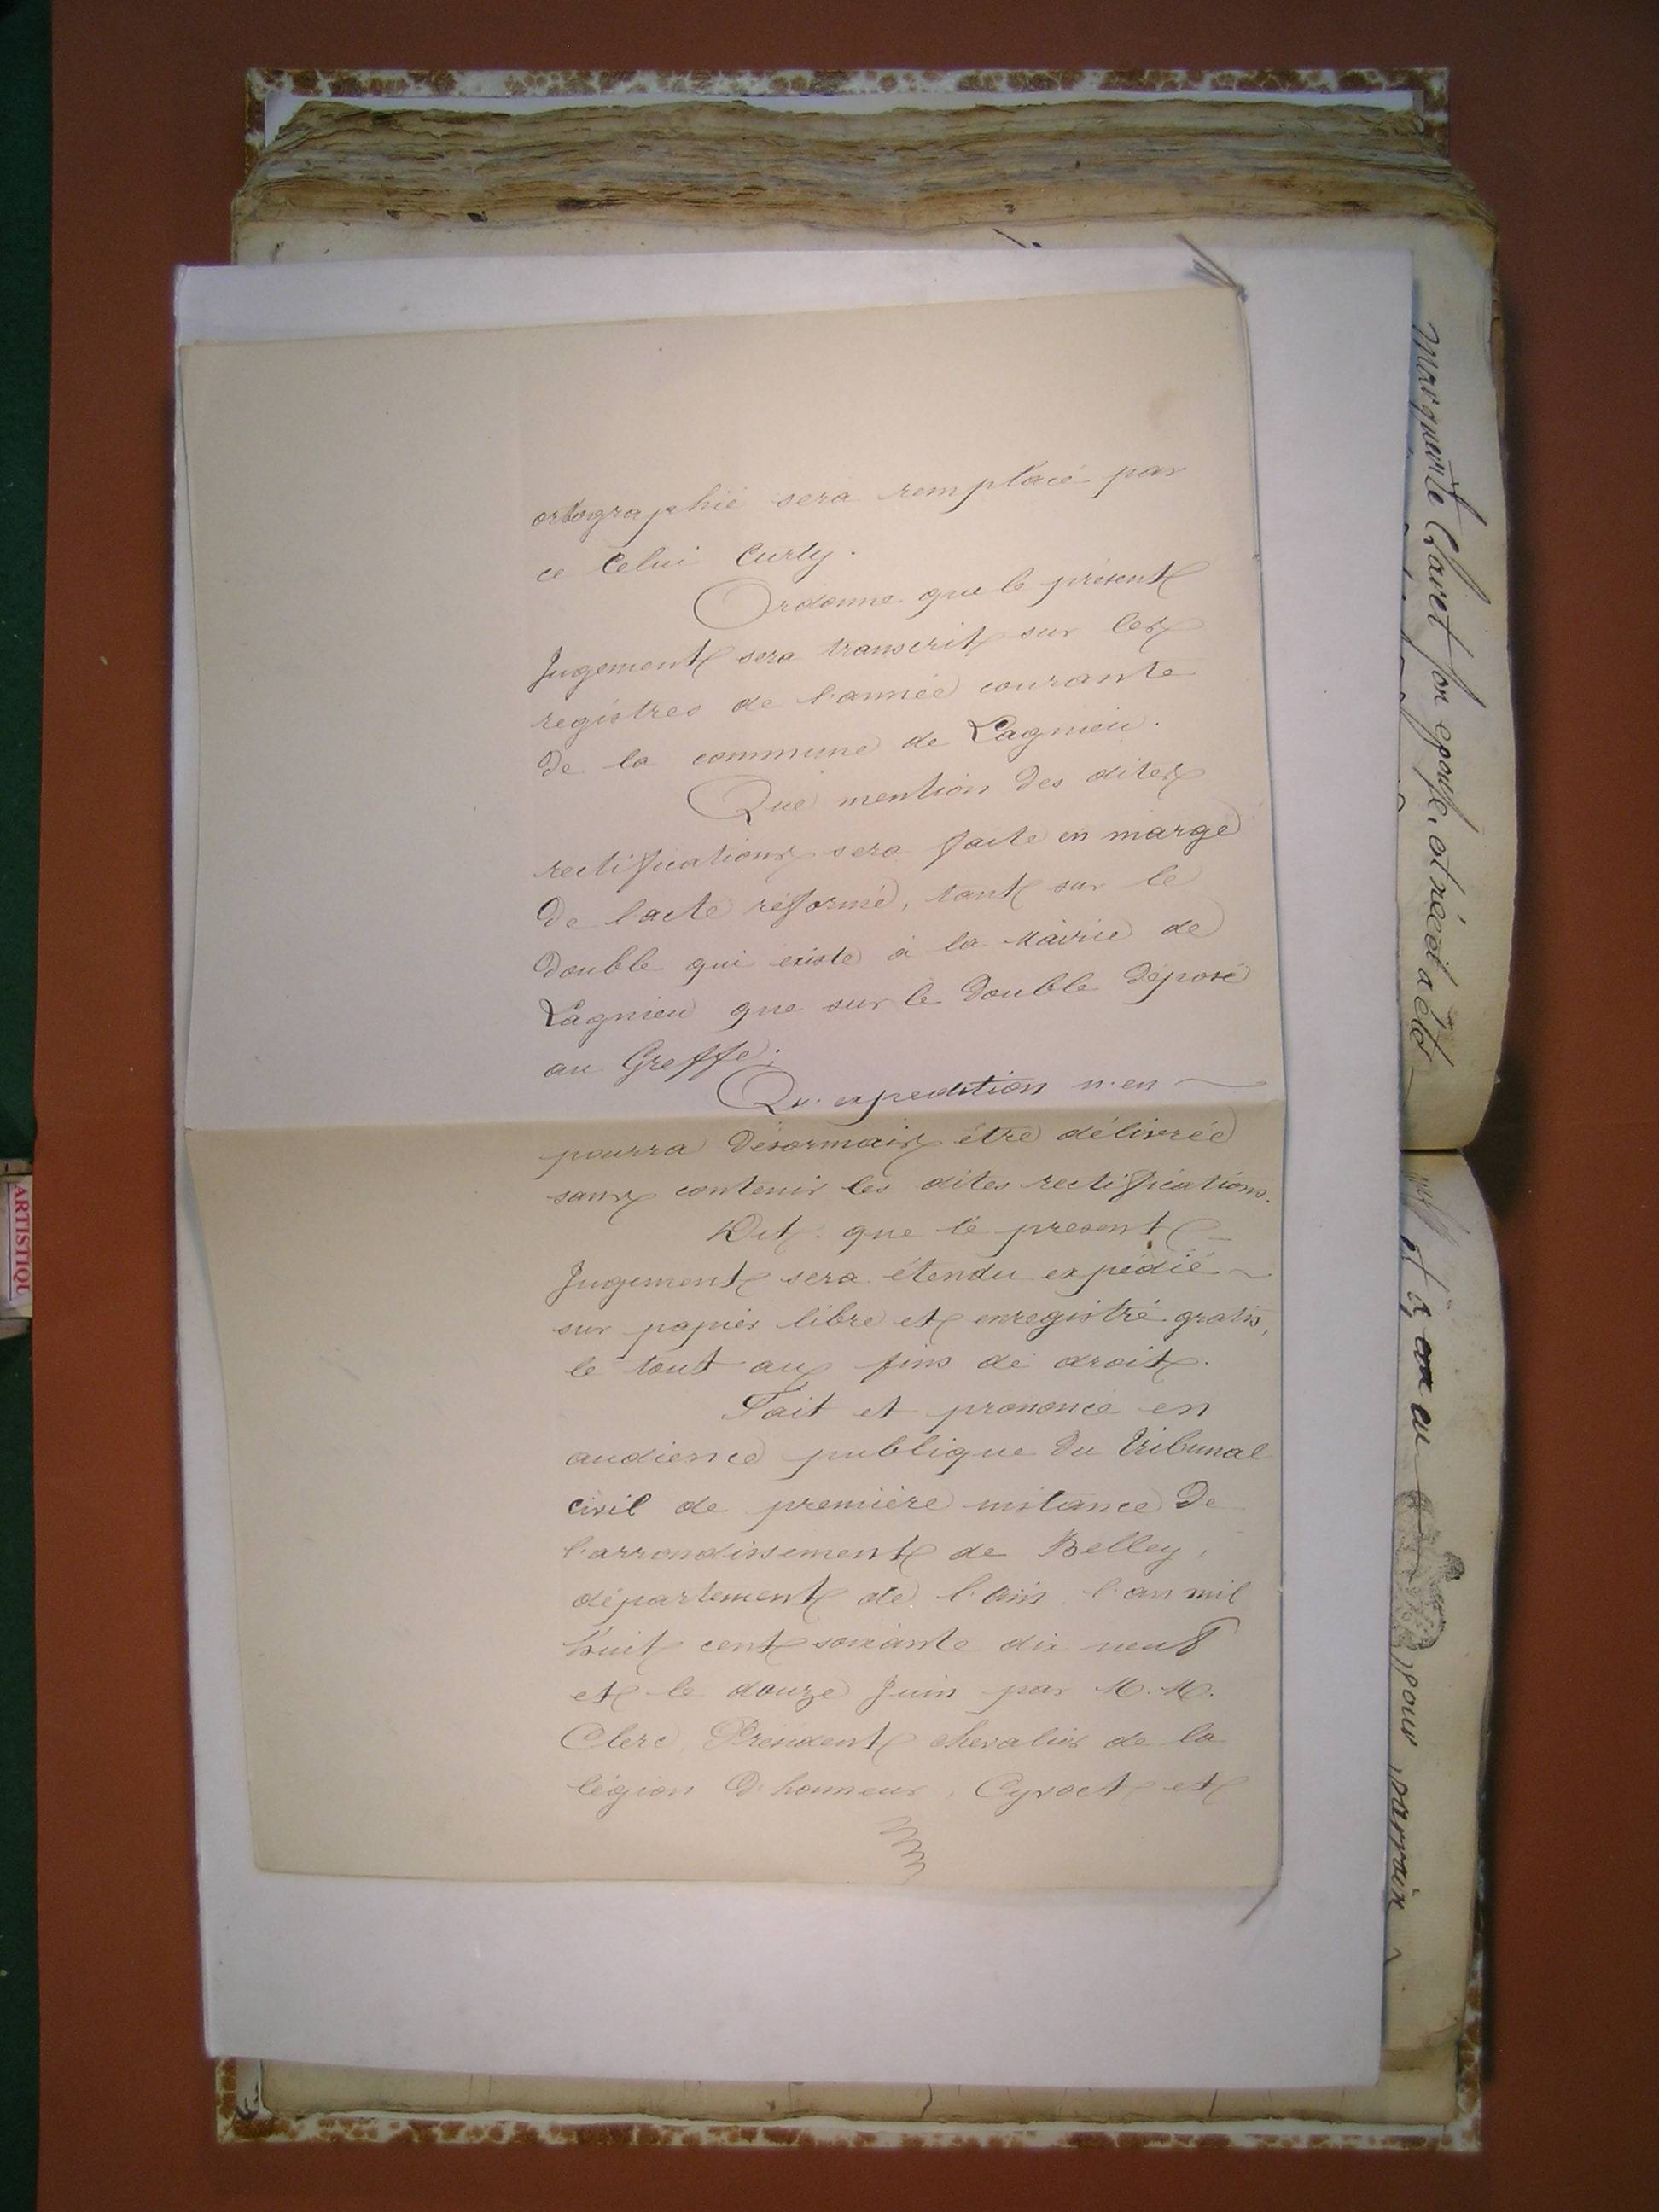 ortographié sera remplacé par
ce Celui Curty.
Ordonne que le présent
Jugement sera transcrit sur les
registres de l'année courante
De la commune de Lagnieu.
Que mention Des dites
rectifications sera faite en marge
De l'acte réformé, tant sur le
Double qui existe à la Mairie de
Lagnieu que sur le Double Déposé
au Greffe;
Qu'expedition n'en
pourra Désormais être délivrée
sans contenir les dites rectifications.
Dit que le present
Jugement sera étendu expédié
sur papier libre et enregistré gratis,
le tout aux fins de droit.
Fait et prononcé en
audience publique Du Tribunal
civil de première instance De
l'arrondissement de Belley,
département de l'Ain l'an mil
huit cent soixante dix neuf
et le douze Juin par M. M.
Clerc, Président chevalier de la
légion D'honneur, Cyvoct et
Marguerite Claret son epouse, est née et a été
et a eu pour parrain
ARTISTIQU